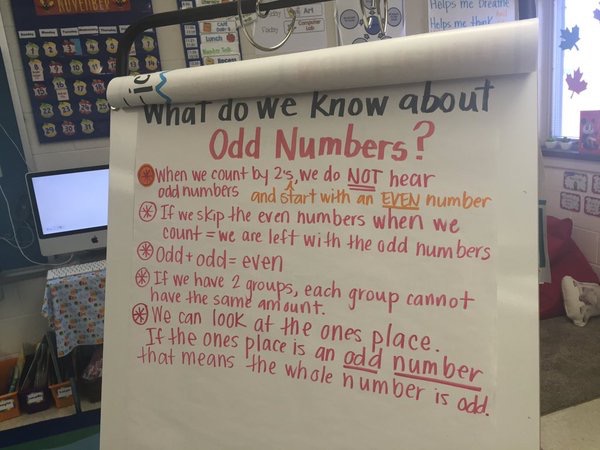 NOVEMBER
Lunch
Recess
Art
Computer Lab
Helps me breathe
Helps me think
What do we know about
Odd Numbers?
When we count by 2's, we do NOT hear
odd numbers and start with an EVEN number
If we skip the even numbers when we
count = we are left with the odd numbers
Odd + odd = even
If we have 2 groups, each group cannot
have the same amount.
We can look at the ones place.
If the ones place is an odd number
that means the whole number is odd.